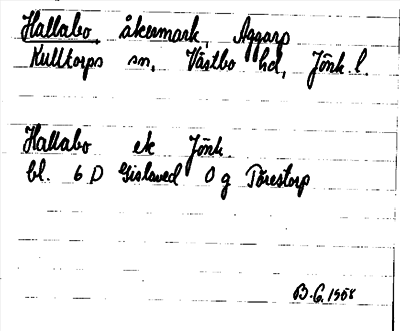 Hallabo, åkermark, Aggarp
Kulltorps sn, Västbo hd, Jönk. l.
Hallabo ek Jönk.
bl. 6 D Gislaved 0 g Törestorp
B.G. 1958